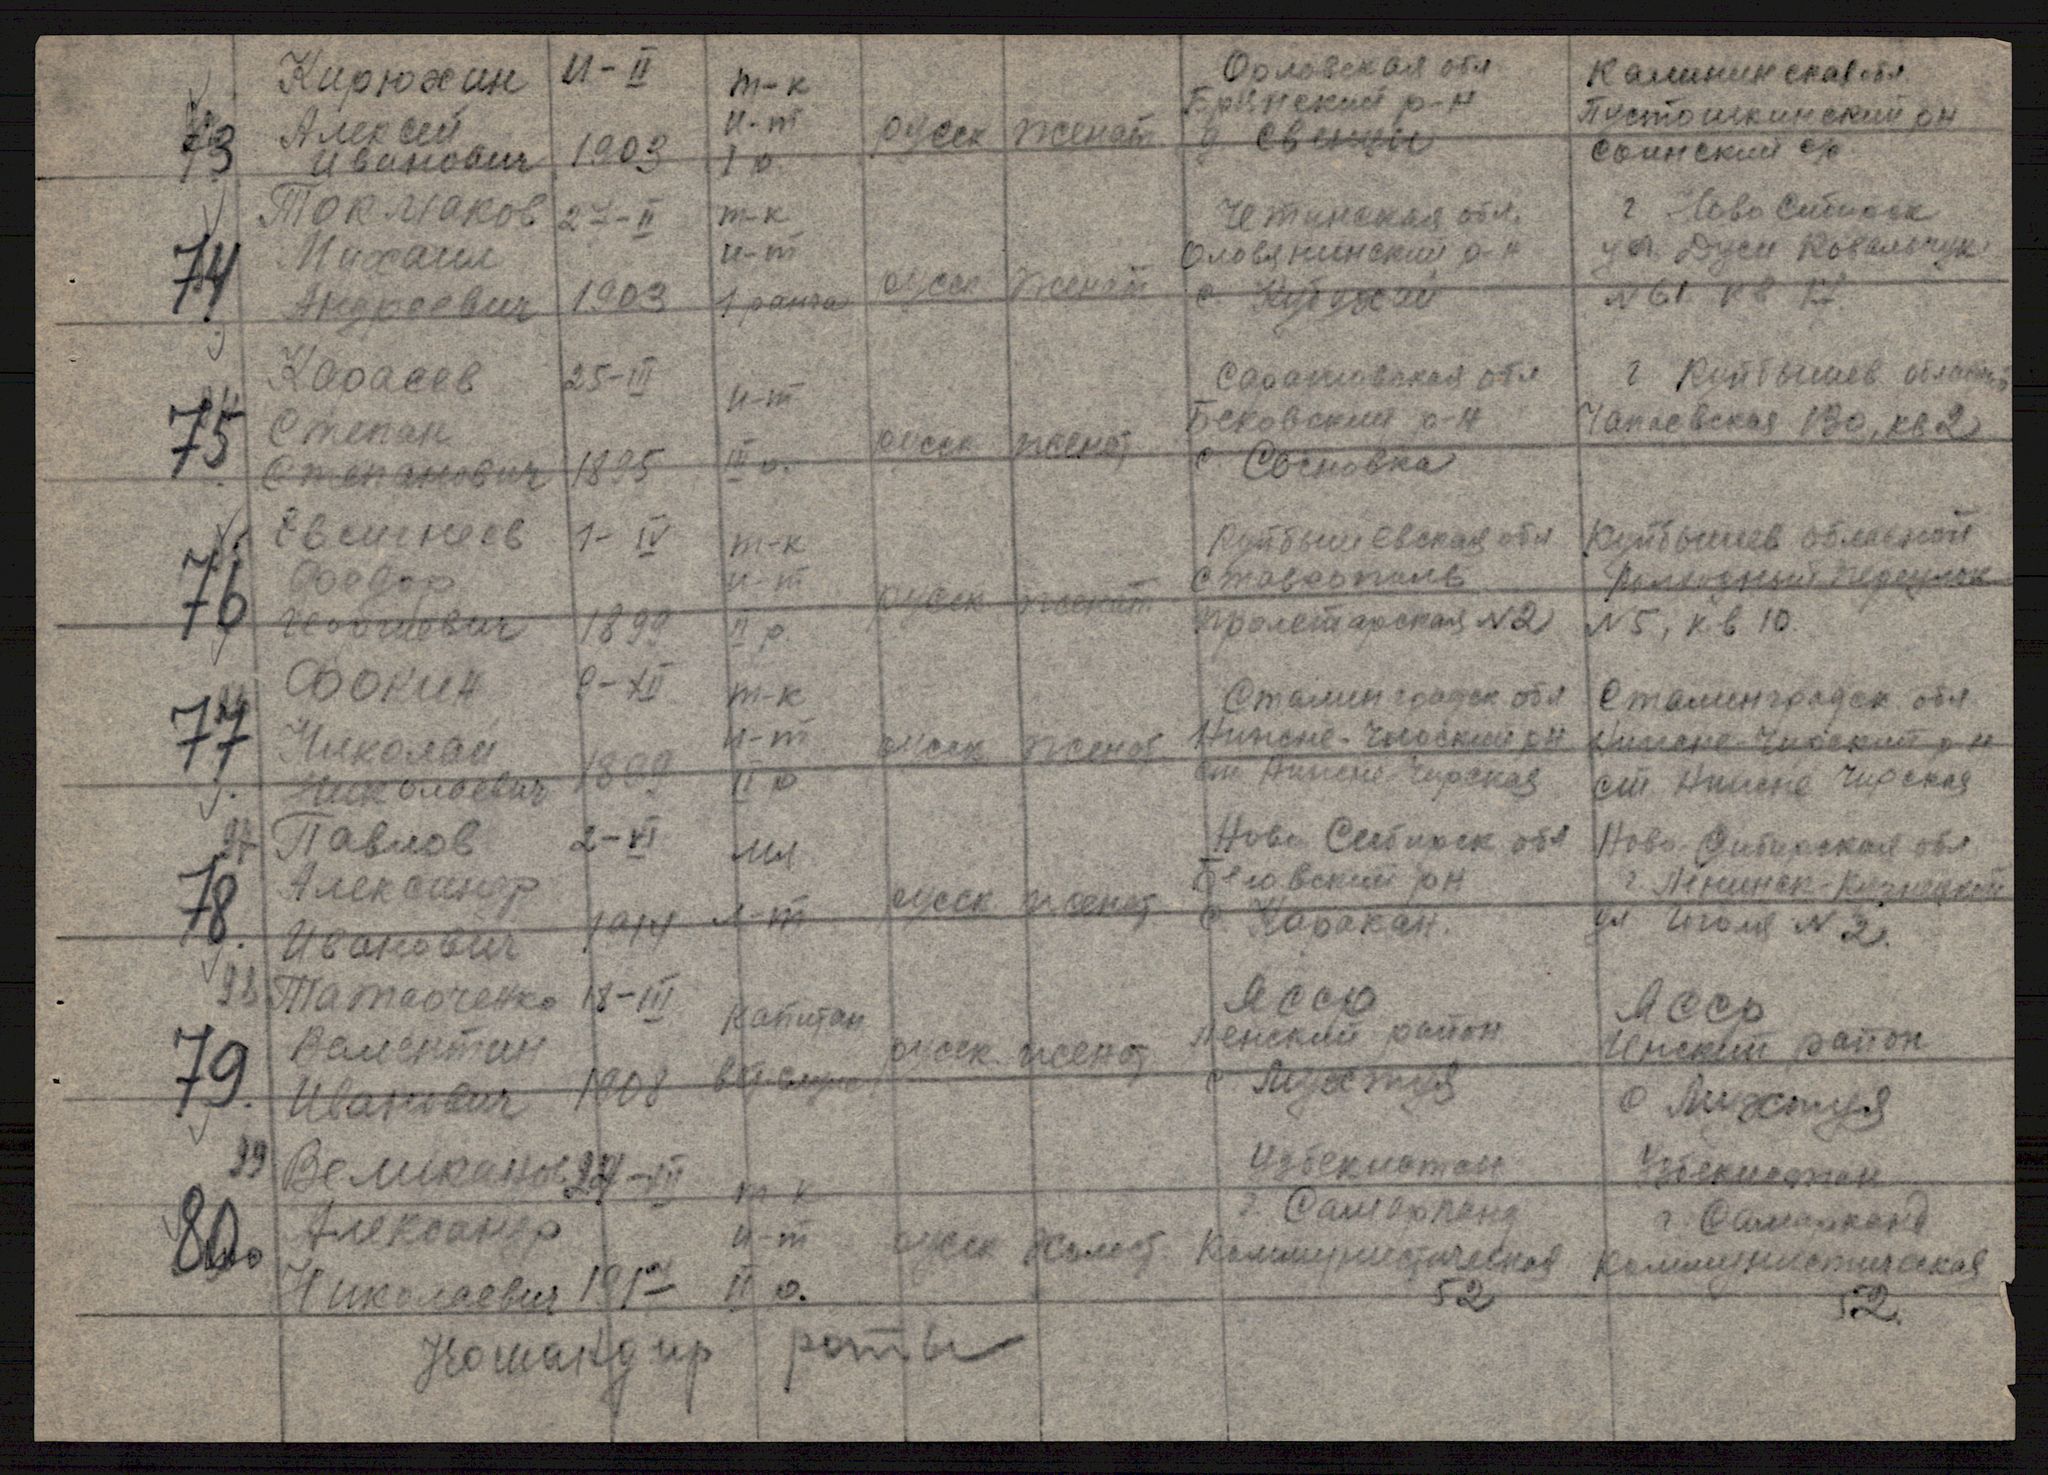 73 Кирюхин 11-II т-к Орловская обл Калининская обл.
Алексей и-т русск женат Брянский р-н Пустошкинский рн
Иванович 1903 I р. д Свенцы с/с
74 Токмаков 27-II т-к Читинская обл. г Ново Сибирск
Михаил и-т русск женат Оловянинский р-н ул. Дуси Ковальчук
Андреевич 1903 1 ранга с. N 61 кв
75 Карасев 25-III и-т Саратовская обл г Куйбышев
Степан русск женат Бековский р-н Чапаевская 130, кв 2
Степанович 1895 III р. с. Сосновка
76 Евстигнеев 1-IV т-к Куйбышевская обл Куйбышев
Федор и-т русск женат Ставрополь
1899 II р. Пролетарская N2 N5, кв 10.
77 Фокин 9-XII т-к Сталинградск обл Сталинградск обл
Николай и-т русск женат Нижне-Чирский рн Нижне-Чирский р-н
Николаевич 1899 II р ст Нижне Чирская ст. Нижне Чирская
97
78 Павлов 2-VI мл Ново Сибирск обл Ново-Сибирская обл
Александр л-т русск женат рн г. Ленинск-Кузнецкий
Иванович 1914 с. Каракан. ул N 2.
98
79 18-III Капитан ЯССР ЯССР
Валентин русск женат Ленский район Ленский район
Иванович 1908 с Мухтуя с Мухтуя
99
80. Великанов -III т-к Узбекистан Узбекистан
Александр и-т русск холост г. Самарканд г. Самарканд
Николаевич II р. Коммунистическая Коммунистическая
52 52.
Командир роты